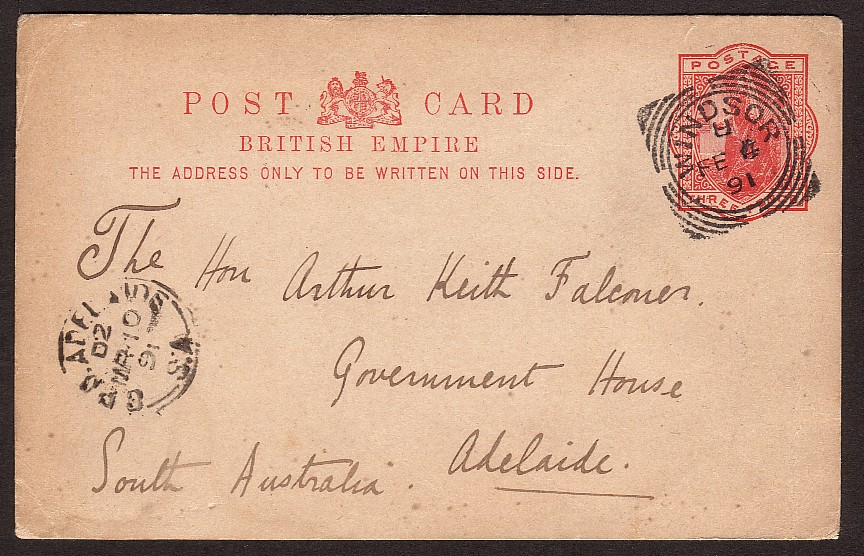 POST CARD
BRITISH EMPIRE
THE ADDRESS ONLY TO BE WRITTEN ON THIS SIDE.
POSTAGE
THREE
WINDSOR
FE
91
The Hon Arthur Keith Falconer.
Government House
Adelaide.
South Australia.
G.P.O. ADELAIDE S.A.
D2
MR 10
91